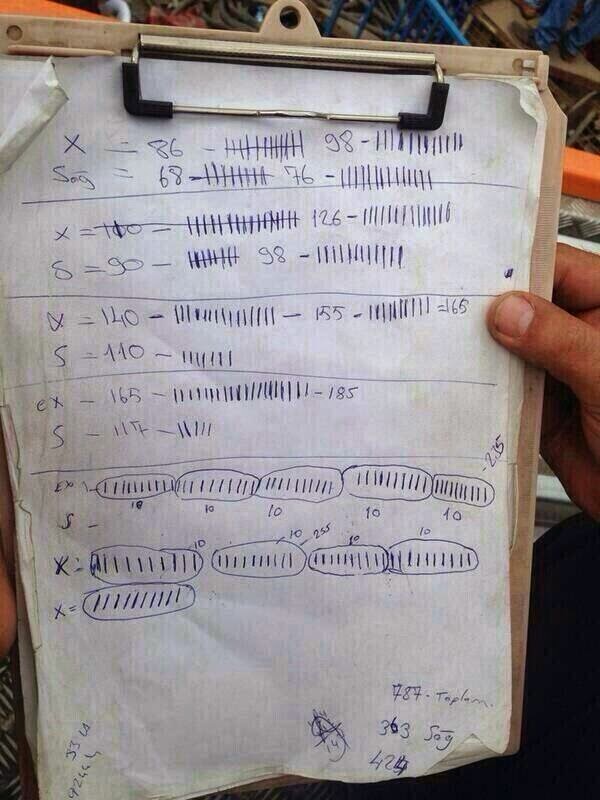 X = 86 - 98 -
Sağ = 68 - 76 -
X = 110 - 126 -
S = 90 - 98 -
X = 140 - - 155 - =165
S = 110 -
ex - 165 - - 185
S - 117 -
EX - - 235
10 10 10 10 10
S -
X = 10 10 255 10 10
X =
787 - Toplam.
363 Sağ
424